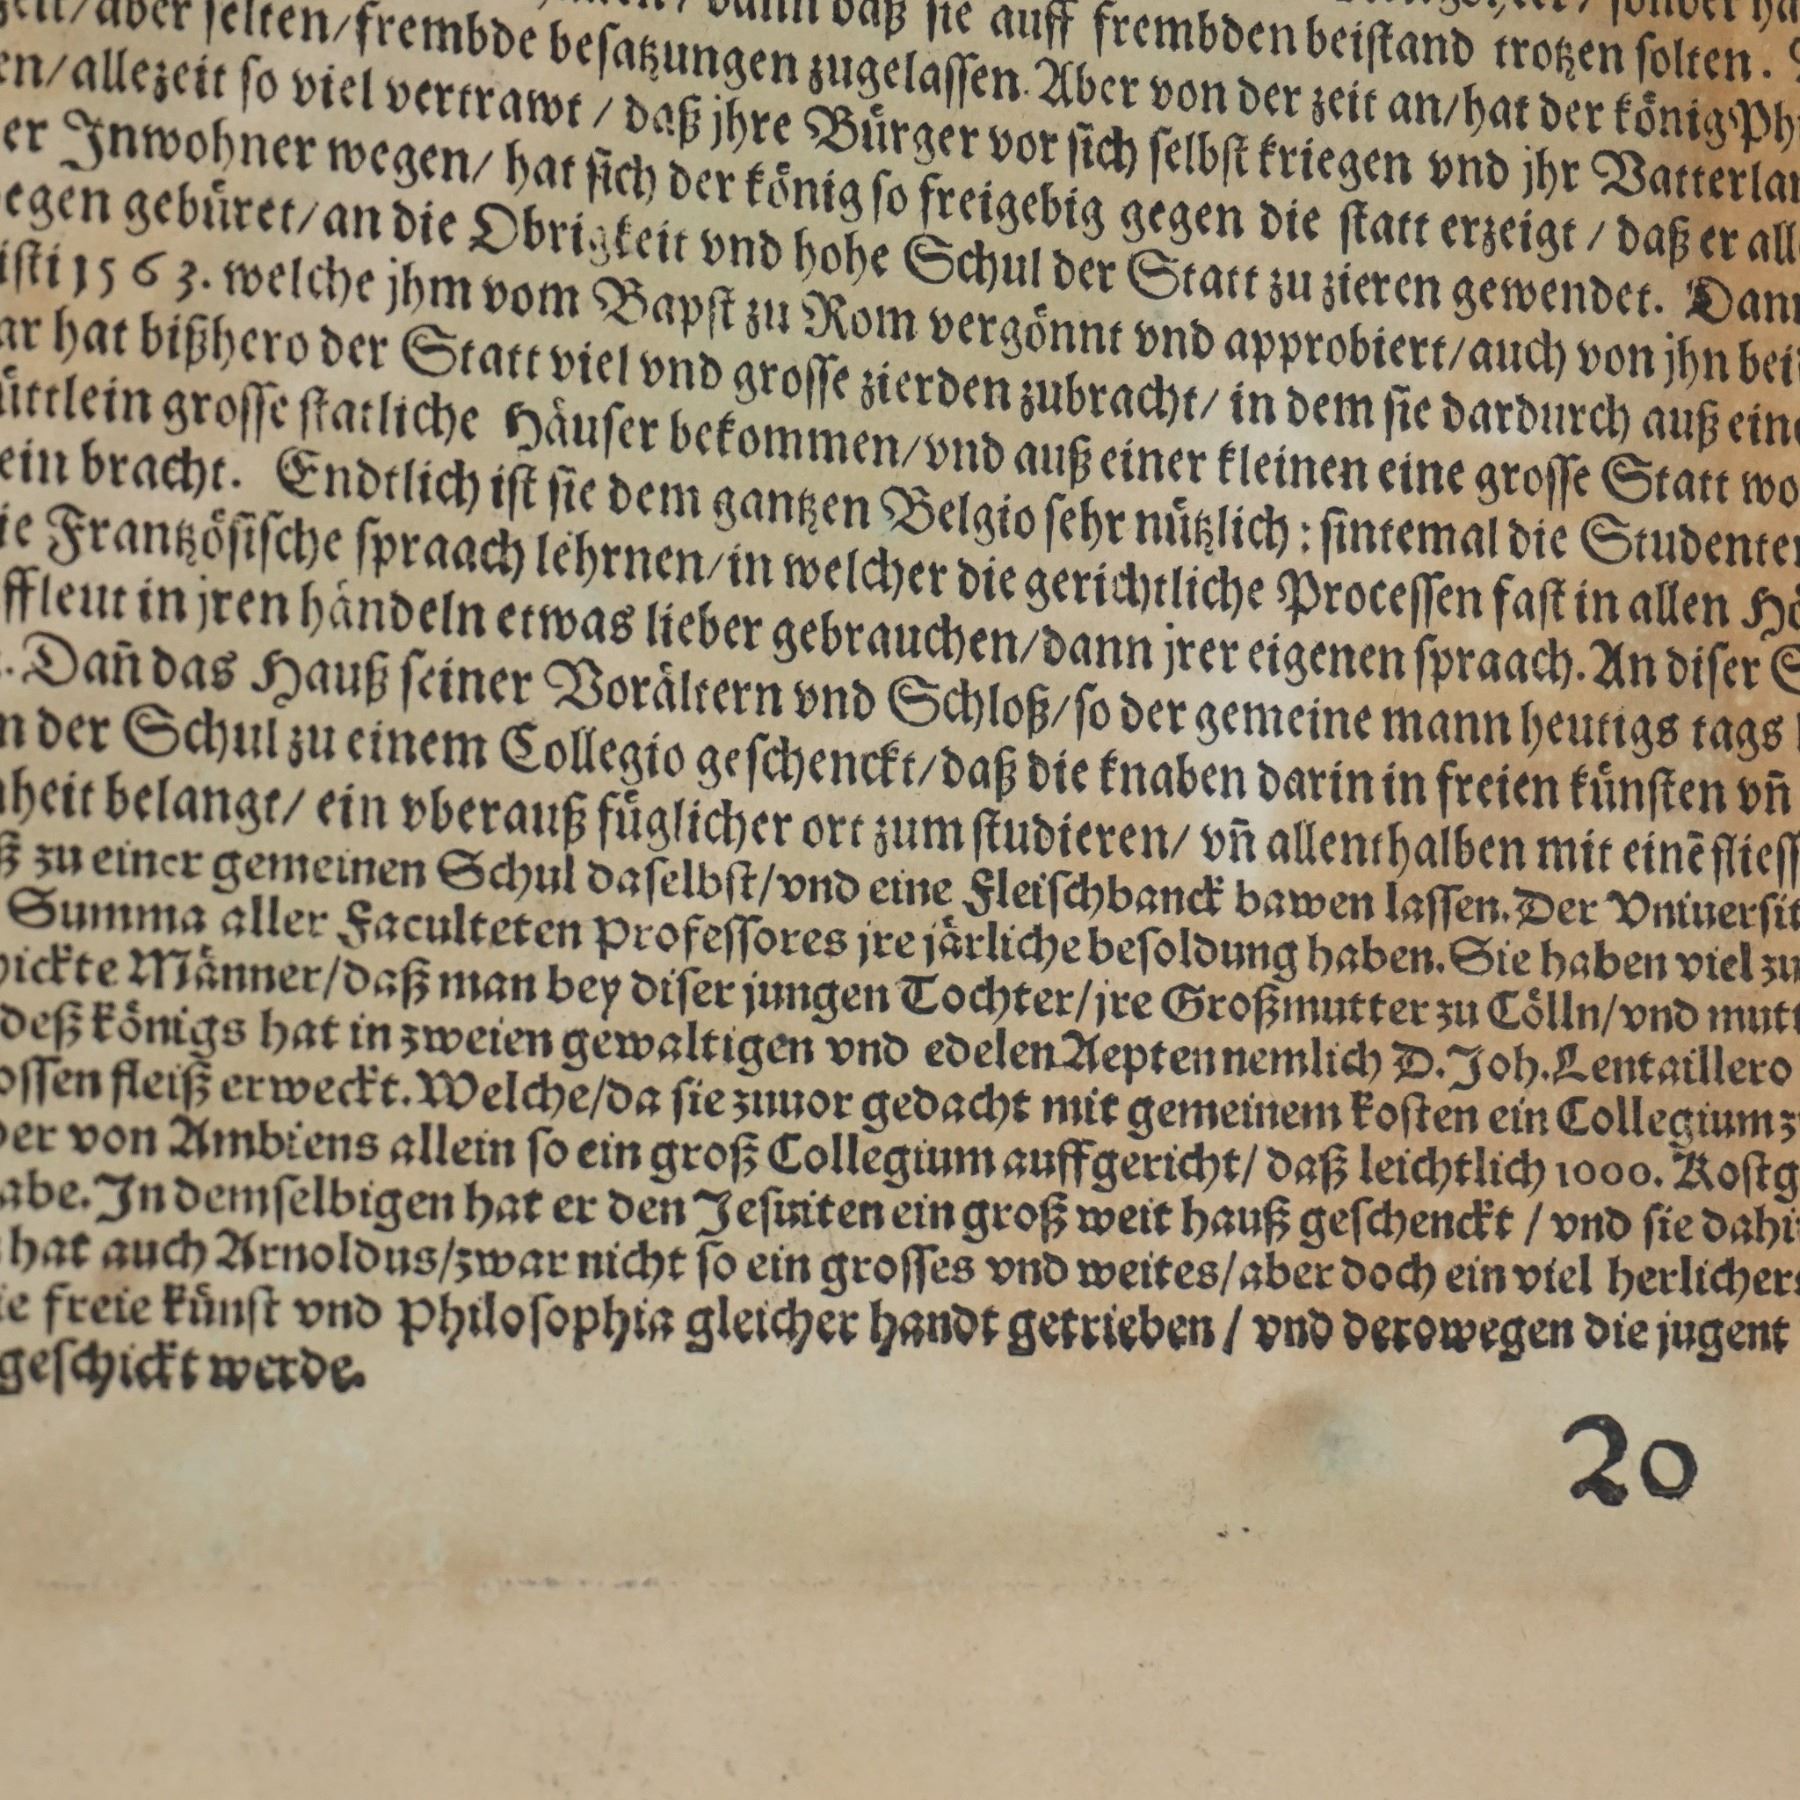 aber selten/frembde besatzungen zugelassen. Aber von der zeit an/hat der könig Ph
daß sie auff frembden beistand trotzen solten.
en/allezeit so viel vertrawt / daß jhre Bürger vor sich selbst kriegen vnd jhr Vatterlan
er Inwohner wegen/ hat sich der könig so freigebig gegen die statt erzeigt / daß er all
egen gebüret/an die Obrigkeit vnd hohe Schul der Statt zu zieren gewendet. Dann
isti 1563. welche jhm vom Bapst zu Rom vergönnt vnd approbiert/auch von jhn bei
ar hat bißhero der Statt viel vnd grosse zierden zubracht/ in dem sie dardurch auß eine
üttlein grosse statliche Häuser bekommen/vnd auß einer kleinen eine grosse Statt wo
ein bracht. Endtlich ist sie dem gantzen Belgio sehr nützlich: sintemal die Studenten
ie Frantzösische spraach lehrnen/in welcher die gerichtliche Processen fast in allen Hö
ffleut in jren händeln etwas lieber gebrauchen/dann jrer eigenen spraach. An diser S
. Dañ das Hauß seiner Vorältern vnd Schloß/so der gemeine mann heutigs tags
n der Schul zu einem Collegio geschenckt/daß die knaben darin in freien künsten vñ
nheit belangt/ ein vberauß füglicher ort zum studieren/ vñ allenthalben mit einē fliess
ß zu einer gemeinen Schul daselbst/vnd eine Fleischbanck bawen lassen. Der Vniuersit
Summa aller Faculteten Professores jre järliche besoldung haben. Sie haben viel zu
ickte Männer/daß man bey diser jungen Tochter/jre Großmutter zu Cölln/vnd mutt
deß königs hat in zweien gewaltigen vnd edelen Aepten nemlich D. Joh. Lentaillero
ossen fleiß erweckt. Welche/da sie zuuor gedacht mit gemeinem kosten ein Collegium z
er von Ambiens allein so ein groß Collegium auffgericht/ daß leichtlich 1000. Kostg
abe. In demselbigen hat er den Jesuiten ein groß weit hauß geschenckt / vnd sie dahi
hat auch Arnoldus/zwar nicht so ein grosses vnd weites/aber doch ein viel herlichers
ie freie künst vnd Philosophia gleicher handt getrieben / vnd derowegen die jugent
geschickt werde.
20